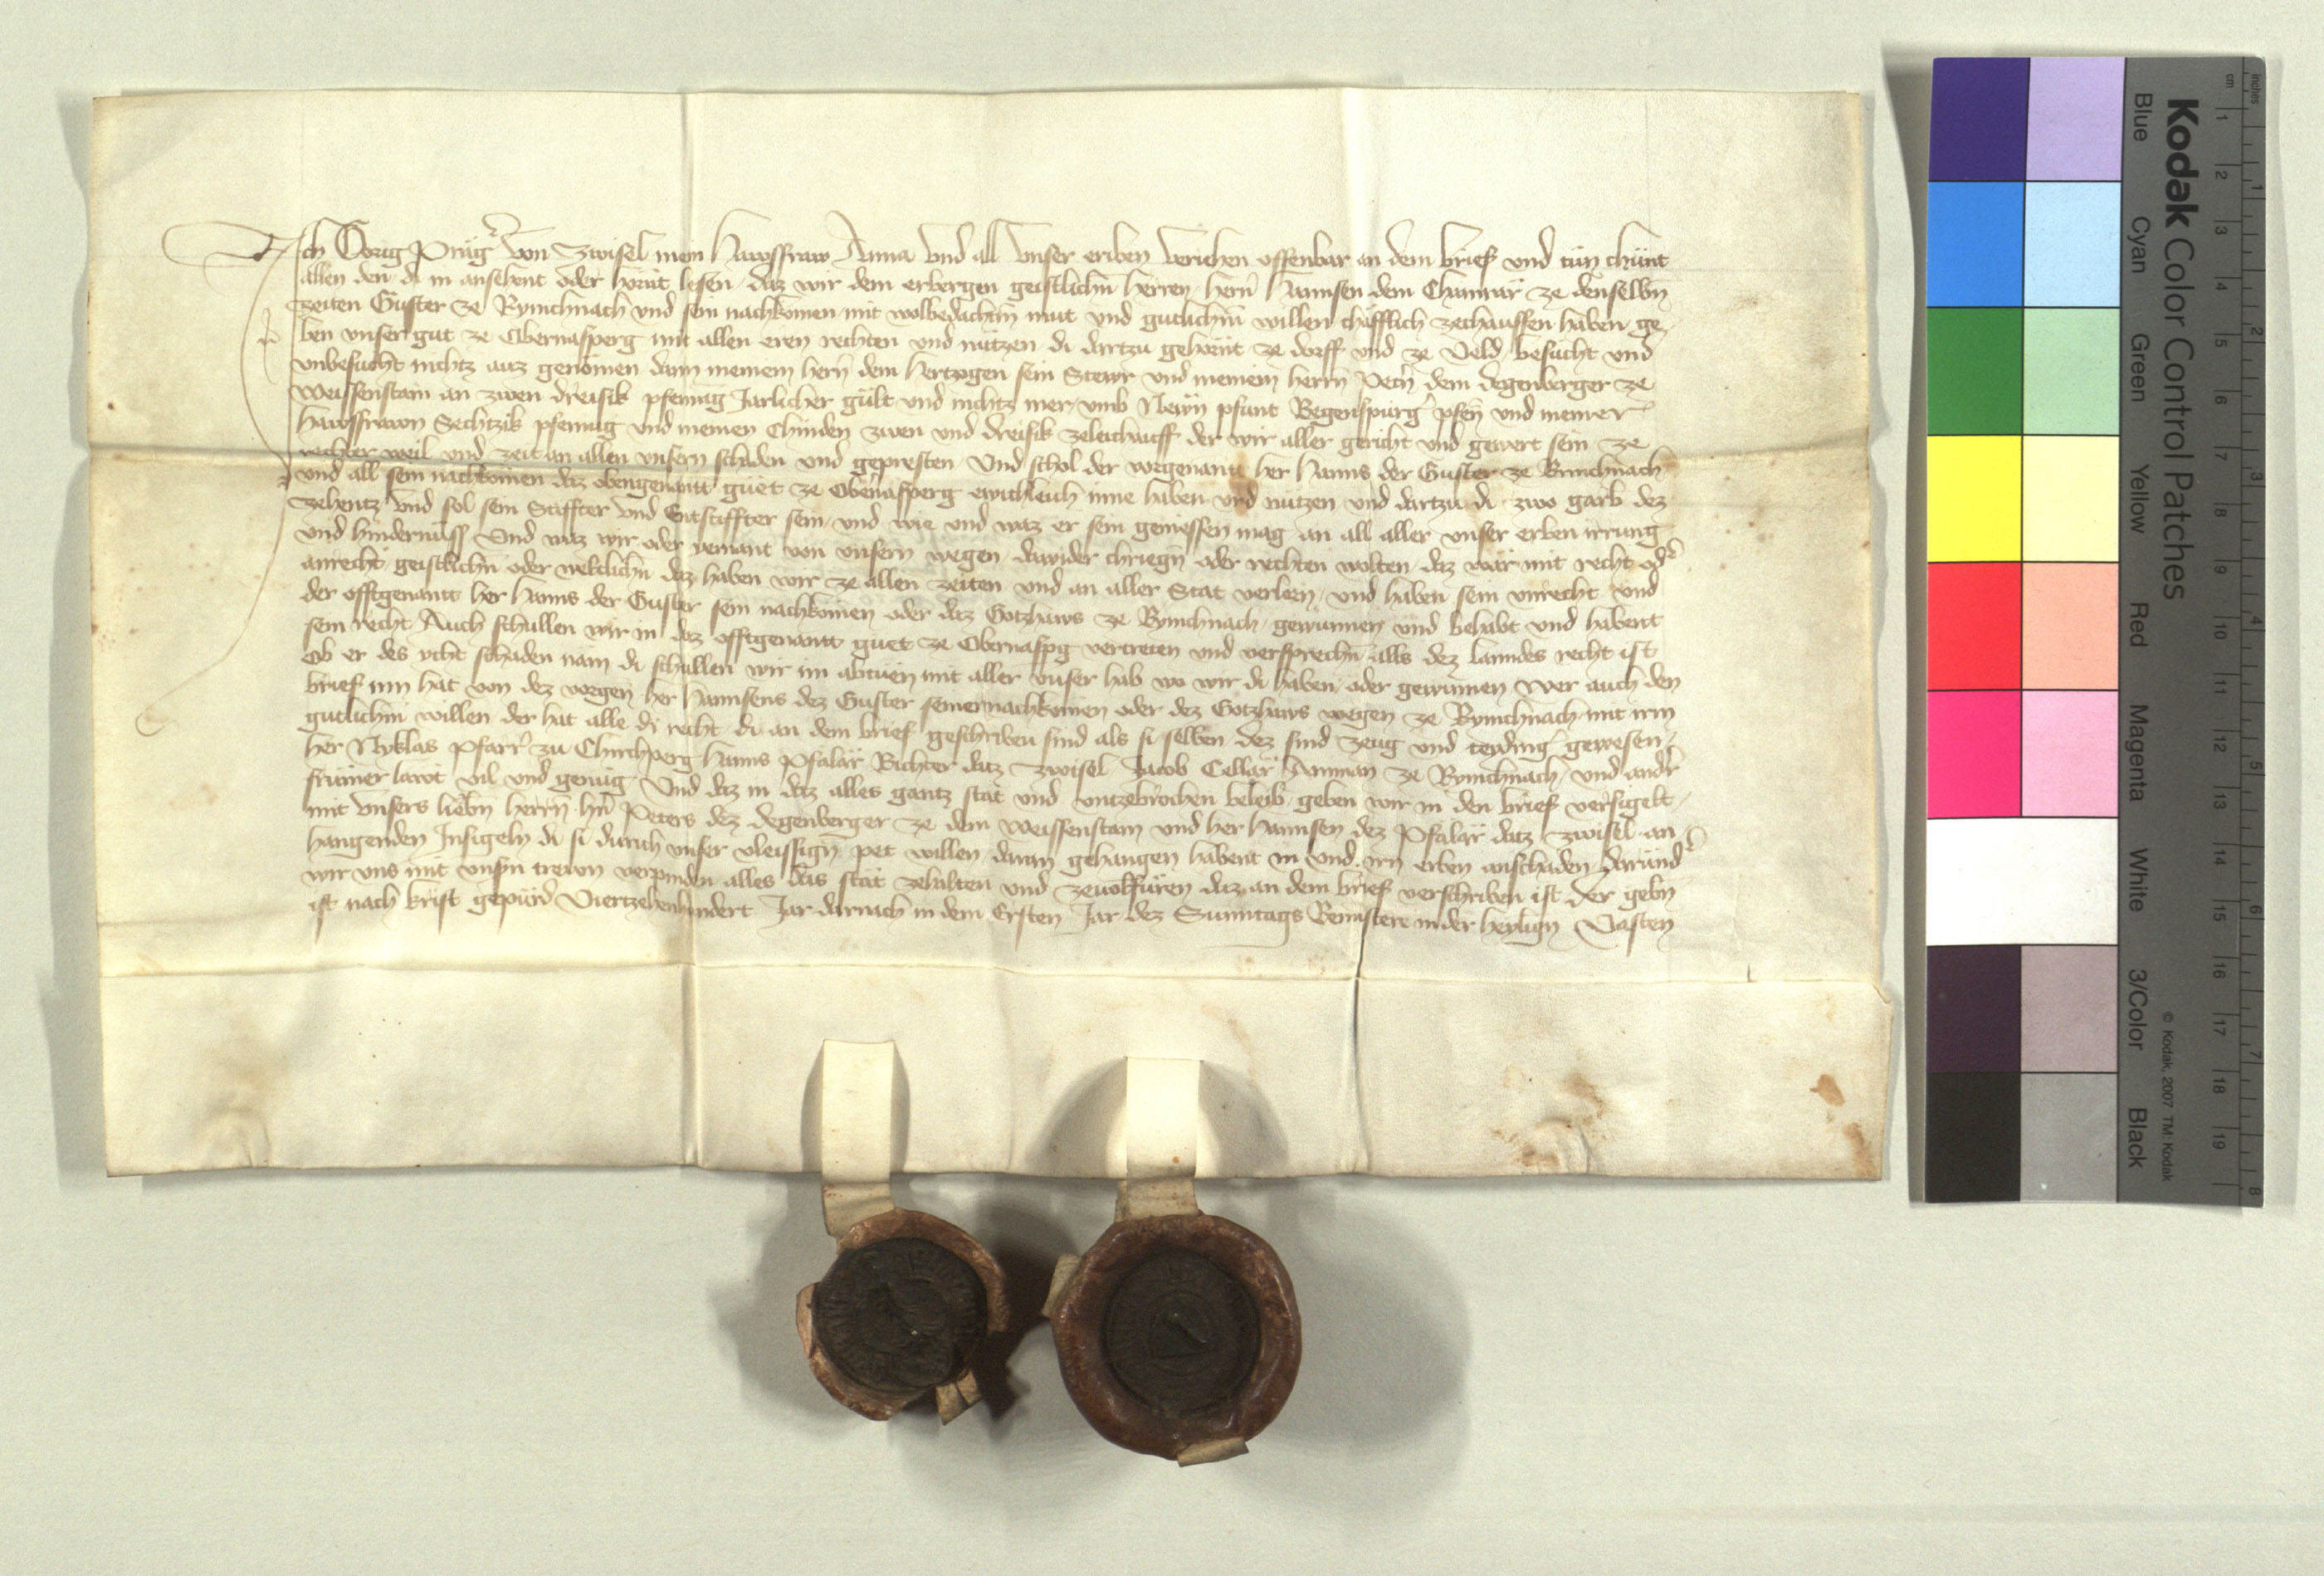 Ich Görig Präg̃ von Zwisel mein Hawsfraw Anna vnd all vnser eriben veriehen offenbar an dem brief vnd tün chünt
allen den di in ansehent oder hörnt lesen daz wir dem erbergen geistlichñ herren hern̄ Hannsen dem Chamrär ze denselbñ
zeiten Guster ze Rynichnach vnd sein nachkomen mit wolbedachtm̄ mut vnd gutlichm̄ willen chäfflich zechauffen haben ge
ben vnser gut ze Obernasperg mit allen eren rechten vnd nützen di dartzu gehörnt ze dorff vnd ze veld besucht vnd
vnbesucht nichtz auz genömen dann meinem hern̄ dem Hertzogen sein Stewr vnd meinem herrn Petn̄ dem degenberger ze
weissenstain an zwen dreisik pfennig Jarlicher gült vnd nichtz mer vmb Newn pfunt Regenspurg̃ pfen̄ vnd meiner
hawsfrawn Sechtzik pfennig vnd meinen Chinden zwen vnd dreisik zeleichauff der wir aller gericht vnd gewert sein ze
rechter weil vnd zeit an allen vnsern schaden vnd gepresten Vnd schol der vorgenant her Hanns der Guster ze Rinichnach
vnd all sein nachkömen daz obengenantt güet ze Obernasperg ewichleich inne haben vnd nützen vnd dartzu di zwo garb dez
zehentz vnd sol sein Stiffter vnd Entstiffter sein vnd wie vnd waz er sein geniessen mag an all aller vnser erben irrung
vnd hindernüss Vnd waz wir oder yemant von vnsern wegen dawider chriegn̄ oder rechten wolten daz wär mit recht od̃
anrecht geistlichn̄ oder weltlichn̄ daz haben wir ze allen zeiten vnd an aller Stat verlorn vnd haben sein vnrecht vnd
der offtgenantt her Hanns der Guster sein nachkömen oder daz Gotzhaws ze Rynichnach gewunnen vnd behabt vnd habent
sein recht Auch schullen wir in daz offtgenantt guet ze Obernasp̄g vertreten vnd versprechn̄ alls dez lanndes recht ist
Ob er des ycht schaden näm di schullen wir im abtuen mit aller vnser hab wo wir di haben oder gewinnen Wer auch den
brief inn hat von dez vorgen̄ her Hannsens dez Guster seiner nachkömen oder dez Gotzhaws wegen ze Rynichnach mit irm
gutlichm̄ willen der hat alle di recht di an dem brief geschriben sind als si selben dez sind zeug vnd teyding̃ gewesen
her Nyklas Pfarr̃ zu Chirchperg Hanns Pfalär Richter datz Zwisel Jacob Cellär Amman ze Rynichnach vnd andr̃
frumer lawt vil vnd genug Vnd daz in daz alles gantz stät vnd vntzebrochen beleib geben wir in den brief versigelt
mit vnsers liebñ herrn hn̄ Peters dez degenberger ze dem weissenstain vnd her Hannsen dez Pfalär datz zwisel an
hangenden Insigeln di si durich vnser vleyssign̄ pet willen daran gehangen habent in vnd irn erben anschaden darund̃
wir vns mit vnsn̄ trewn verpinden alles das stät zehalten vnd zeuolfüren daz an dem brief verschriben ist der gebñ
ist nach krist gepürd Viertzehenhundert Jar darnach in dem Ersten Jar dez Sunntags Reministere in der heylign̄ Vasten
Kodak Color Control Patches
Blue Cyan Green Yellow Red Magenta White 3/Color Black
© Kodak, 2007 TM: Kodak
cm 1 2 3 4 5 6 7 8 9 10 11 12 13 14 15 16 17 18 19
inches 1 2 3 4 5 6 7 8